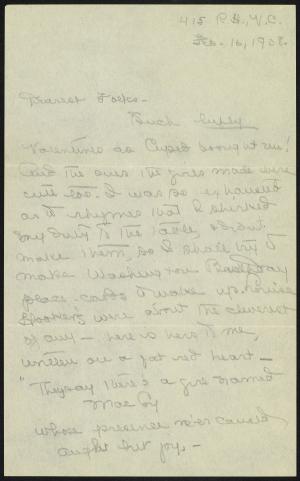 415 P.H., V.C.
Feb. 16, 1908.
Dearest Folks -
Such lovely
Valentines as Cupid brought me!
And the ones the girls made were
cute too. I was so exhausted
as to rhymes that I shirked
my duty to the table, & didn't
make them, so I shall try to
make Washington Birthday
place-cards to make up. Louise
were about the cleverest
of any - here is hers to me,
written on a fat red heart -
"They say there's a girl named
whose presence ne'er caused
aught but joy, -